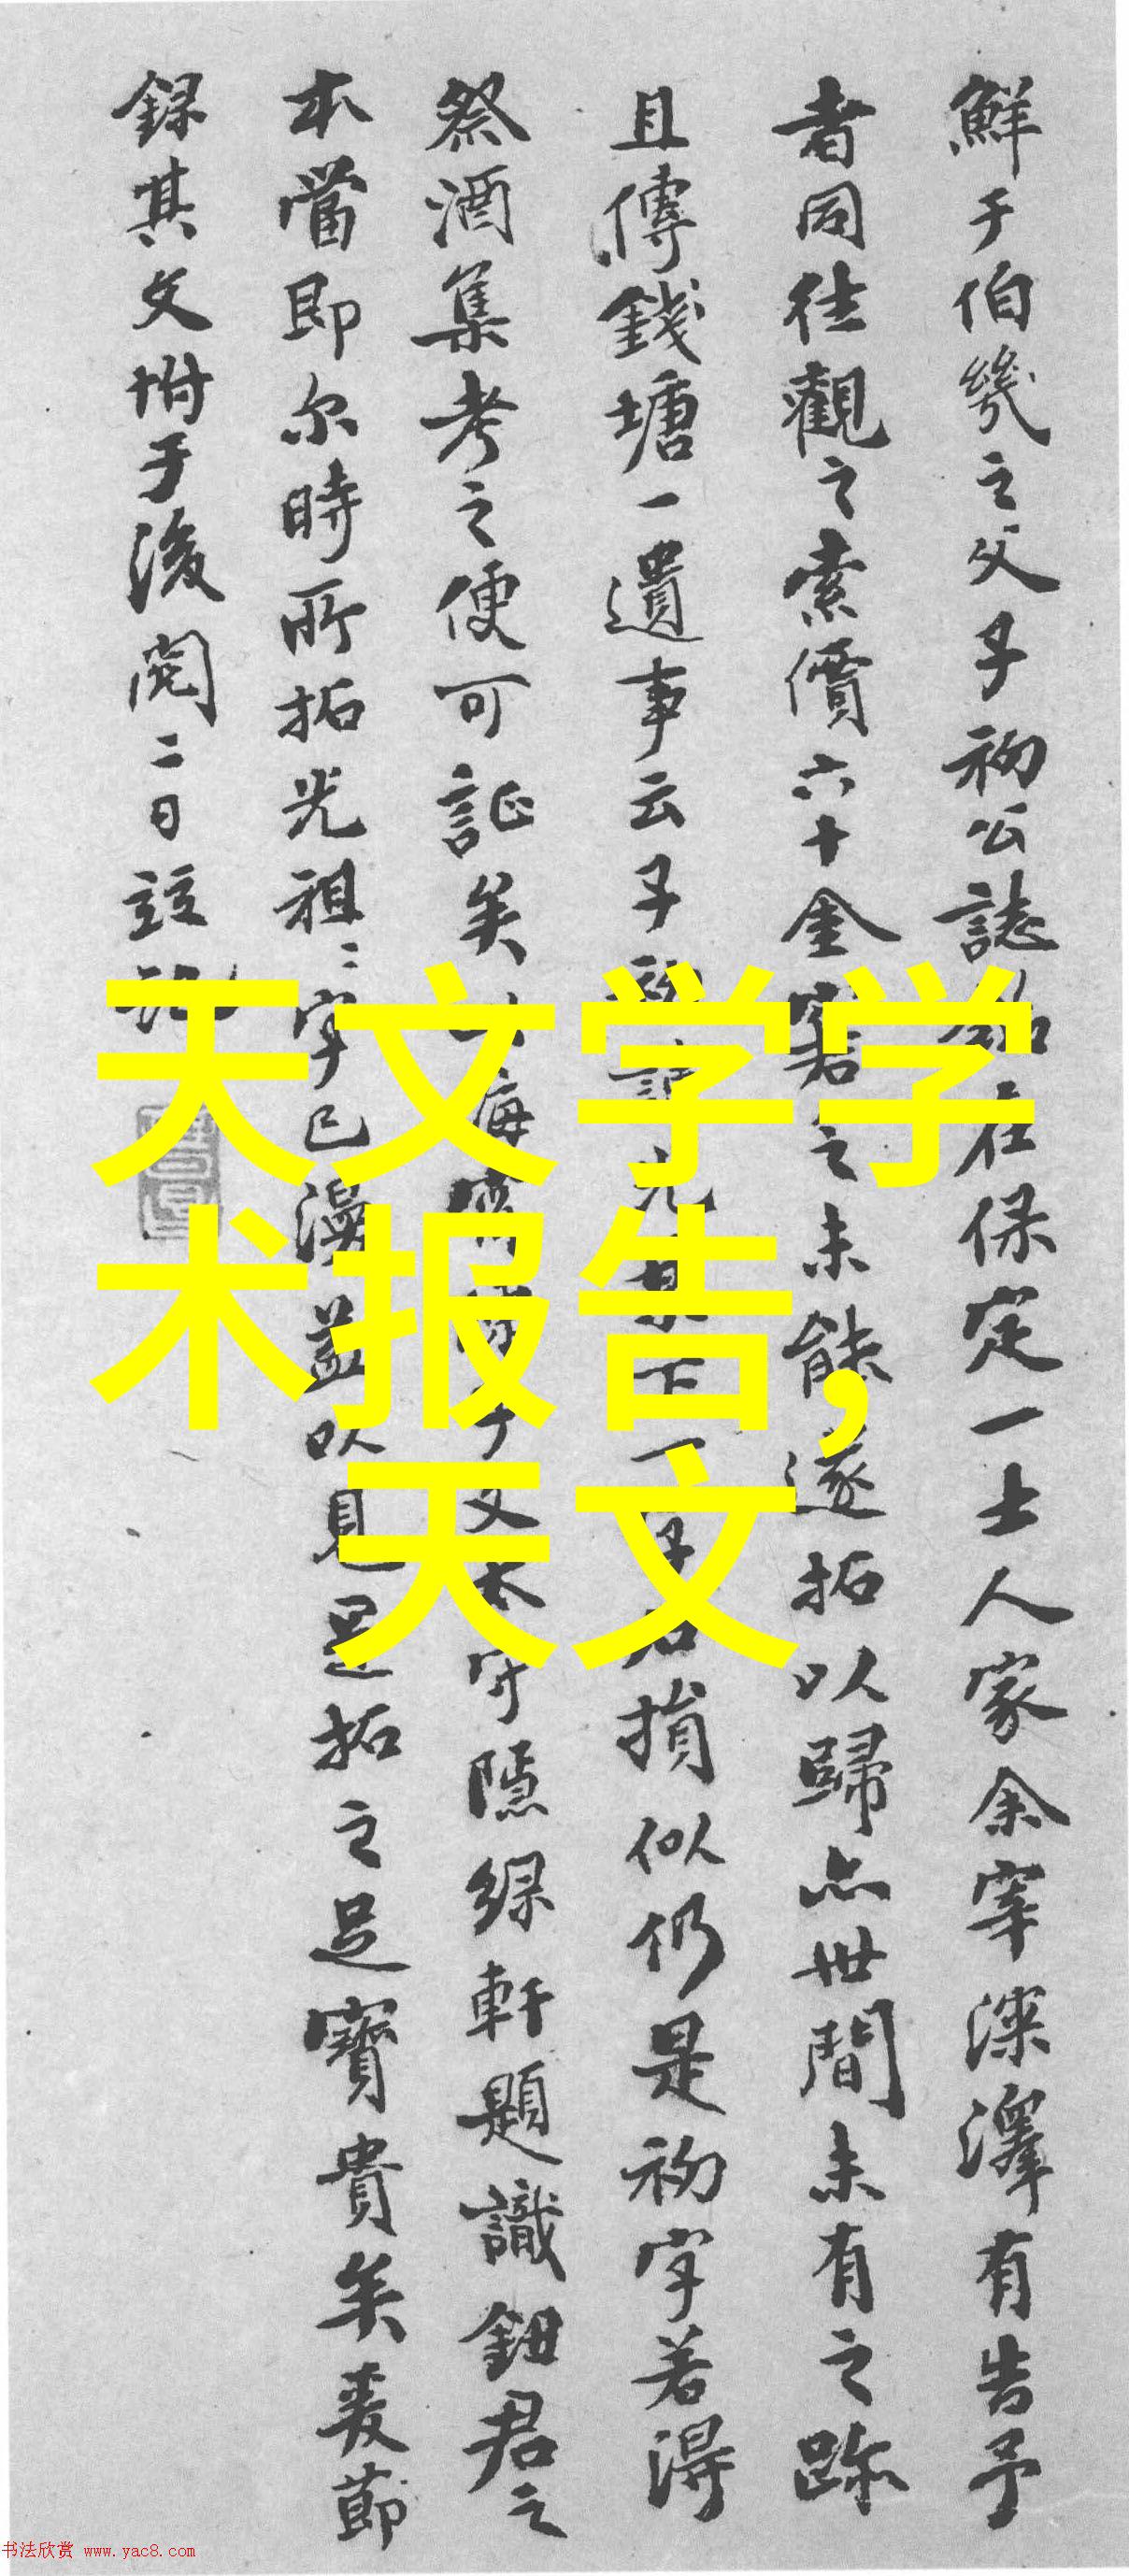 鮮于伯幾之父子初公誌銘在保定一士人家余宰深澤有告予
者同往觀之索價六十金窘之未能遂拓以歸亦世間未有之跡
且傳錢塘一遺事云子初諱光祖下一字石損似仍是初字若得
祭酒集考之便可証矣 守隱綠軒題識鈕君之
本當即尔時所拓光祖二字已漫益以見是拓之足寶貴矣爰節
錄其文坿于後閱二日竝記
天文学学
术报告,
天文
书法欣赏 www.yac8.com